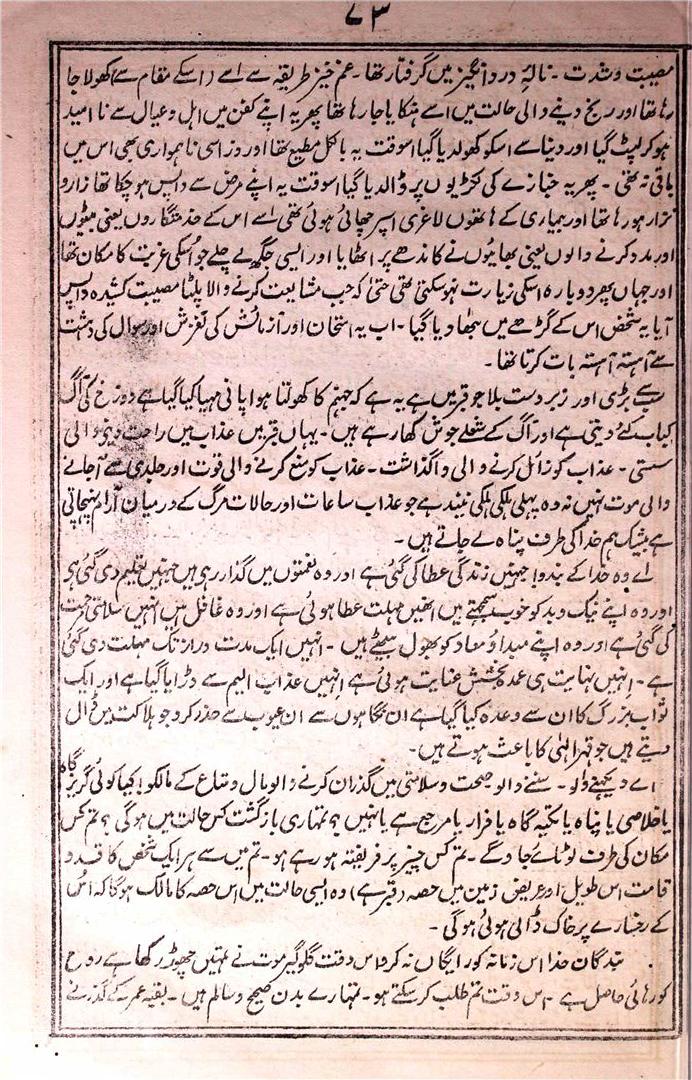 ۷۳
مصیبت و شدت ۔ نالۂ درد انگیز میں گرفتار تھا ۔ غم خیز طریقہ سے اسے (اسکے مقام سے) کھولا جا
رہا تھا اور رنج دینے والی حالت میں اسے ہنکایا جا رہا تھا پھر یہ اپنے کفن میں اہل و عیال سے نا امید
ہو کر لپٹ گیا اور دنیا سے اسکو کھولدیا گیا اسوقت یہ بالکل مطیع تھا اور ذرا سی ناہمواری بھی اس میں
باقی نہ تھی ۔ پھر یہ جنازے کی لکڑیوں پر ڈالدیا گیا اسوقت یہ اپنے مرض سے واپس ہو چکا تھا زار و
نزار ہو رہا تھا اور بیماری کے ہاتھوں لاغری اسپر چھائی ہوئی تھی اسے اس کے خدمتگاروں یعنی بیٹوں
اور مدد کرنے والوں یعنی بھائیوں نے کاندھے پر اٹھایا اور ایسی جگہ لے چلے جو اُسکی غربت کا مکان تھا
اور جہاں پھر دوبارہ اسکی زیارت نہو سکتی تھی حتیٰ کہ جب مشایعت کرنے والا پلٹا مصیبت کشیدہ واپس
آیا یہ شخص اس کے گڑھے میں بٹھا دیا گیا ۔ اب یہ امتحان اور آزمائش کی لغزش اور سوال کی دہشت
سے آہستہ آہستہ بات کرتا تھا ۔
سب سے بڑی اور زبردست بلا جو قبر میں ہے یہ ہے کہ جہنم کا کھولتا ہوا پانی مہیا کیا گیا ہے دوزخ کی آگ
کباب کئے دیتی ہے اور آگ کے شعلے جوش کھا رہے ہیں ۔ یہاں قبر میں عذاب میں راحت دینے والی
سستی ۔ عذاب کو زائل کرنے والی واگذاشت ۔ عذاب کو منع کرنے والی قوت اور جلدی سے آجانے
والی موت نہیں نہ وہ پہلی ہلکی ہلکی نیند ہے جو عذاب ساعات اور حالات مرگ کے درمیان آرام پہنچاتی
ہے بیشک ہم خدا کی طرف پناہ لے جاتے ہیں ۔
اے وہ خدا کے بندو! جنہیں زندگی عطا کی گئی ہے اور وہ نعمتوں میں گذار رہی ہیں جنہیں تعلیم دی گئی ہی
اور وہ اپنے نیک و بد کو خوب سمجھتے ہیں انھیں مہلت عطا ہوئی ہے اور وہ غافل ہیں انہیں سلامتی مرحمت
کی گئی ہے اور وہ اپنے مبدا و معاد کو بھول بیٹھے ہیں ۔ انہیں ایک مدت دراز تک مہلت دی گئی
ہے ۔ انہیں نہایت ہی عمدہ بخشش عنایت ہوئی ہے انہیں عذاب الیم سے ڈرایا گیا ہے اور ایک
ثواب بزرگ کا ان سے وعدہ کیا گیا ہے ان گناہوں سے ان عیوب سے حذر کرو جو ہلاکت میں ڈال
دیتے ہیں جو قہر الٰہی کا باعث ہوتے ہیں ۔
اے دیکھنے والو ۔ سننے والو صحت و سلامتی میں گذران کرنے والو مال و متاع کے مالکو! کیا کوئی گریز گاہ
یا خلاصی یا پناہ یا تکیہ گاہ یا فرار یا مرجع ہے یا نہیں؟ تمہاری بازگشت کس حالت میں ہوگی؟ تم کس
مکان کی طرف لوٹائے جاؤ گے ۔ تم کس چیز پر فریفتہ ہو رہے ہو ۔ تم میں سے ہر ایک شخص کا قد و
قامت اس طویل اور عریض زمین میں حصہ (قبر ہے) وہ ایسی حالت میں اس حصہ کا مالک ہوگا کہ اُس
کے رخسارے پر خاک ڈالی ہوئی ہوگی ۔
بندگان خدا اس زمانہ کو رایگاں نہ کرو اس وقت گلوگیر موت نے تمہیں چھوڑ رکھا ہے روح
کو رہائی حاصل ہے ۔ اس وقت تم طلب کر سکتے ہو ۔ تمہارے بدن صحیح و سالم ہیں ۔ بقیہ عمر کے گذرنے